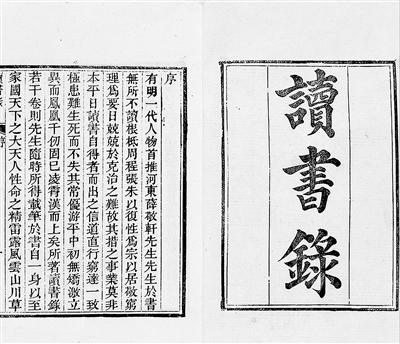 讀書錄
序
有明一代人物首推河東薛敬軒先生先生於書
無所不讀根柢周程張朱以復性為宗以居敬窮
理為要日兢兢於克治之難故其措之事業莫非
本平日讀書自得者而出之信道直行窮達一致
極患難生死而不失其常優游平中初無矯激立
異而鳳凰千仞固已凌霄漢而上矣所著讀書錄
若干卷則先生隨時所得載筆於書自一身以至
家國天下之大天人性命之精雷露風雲山川草